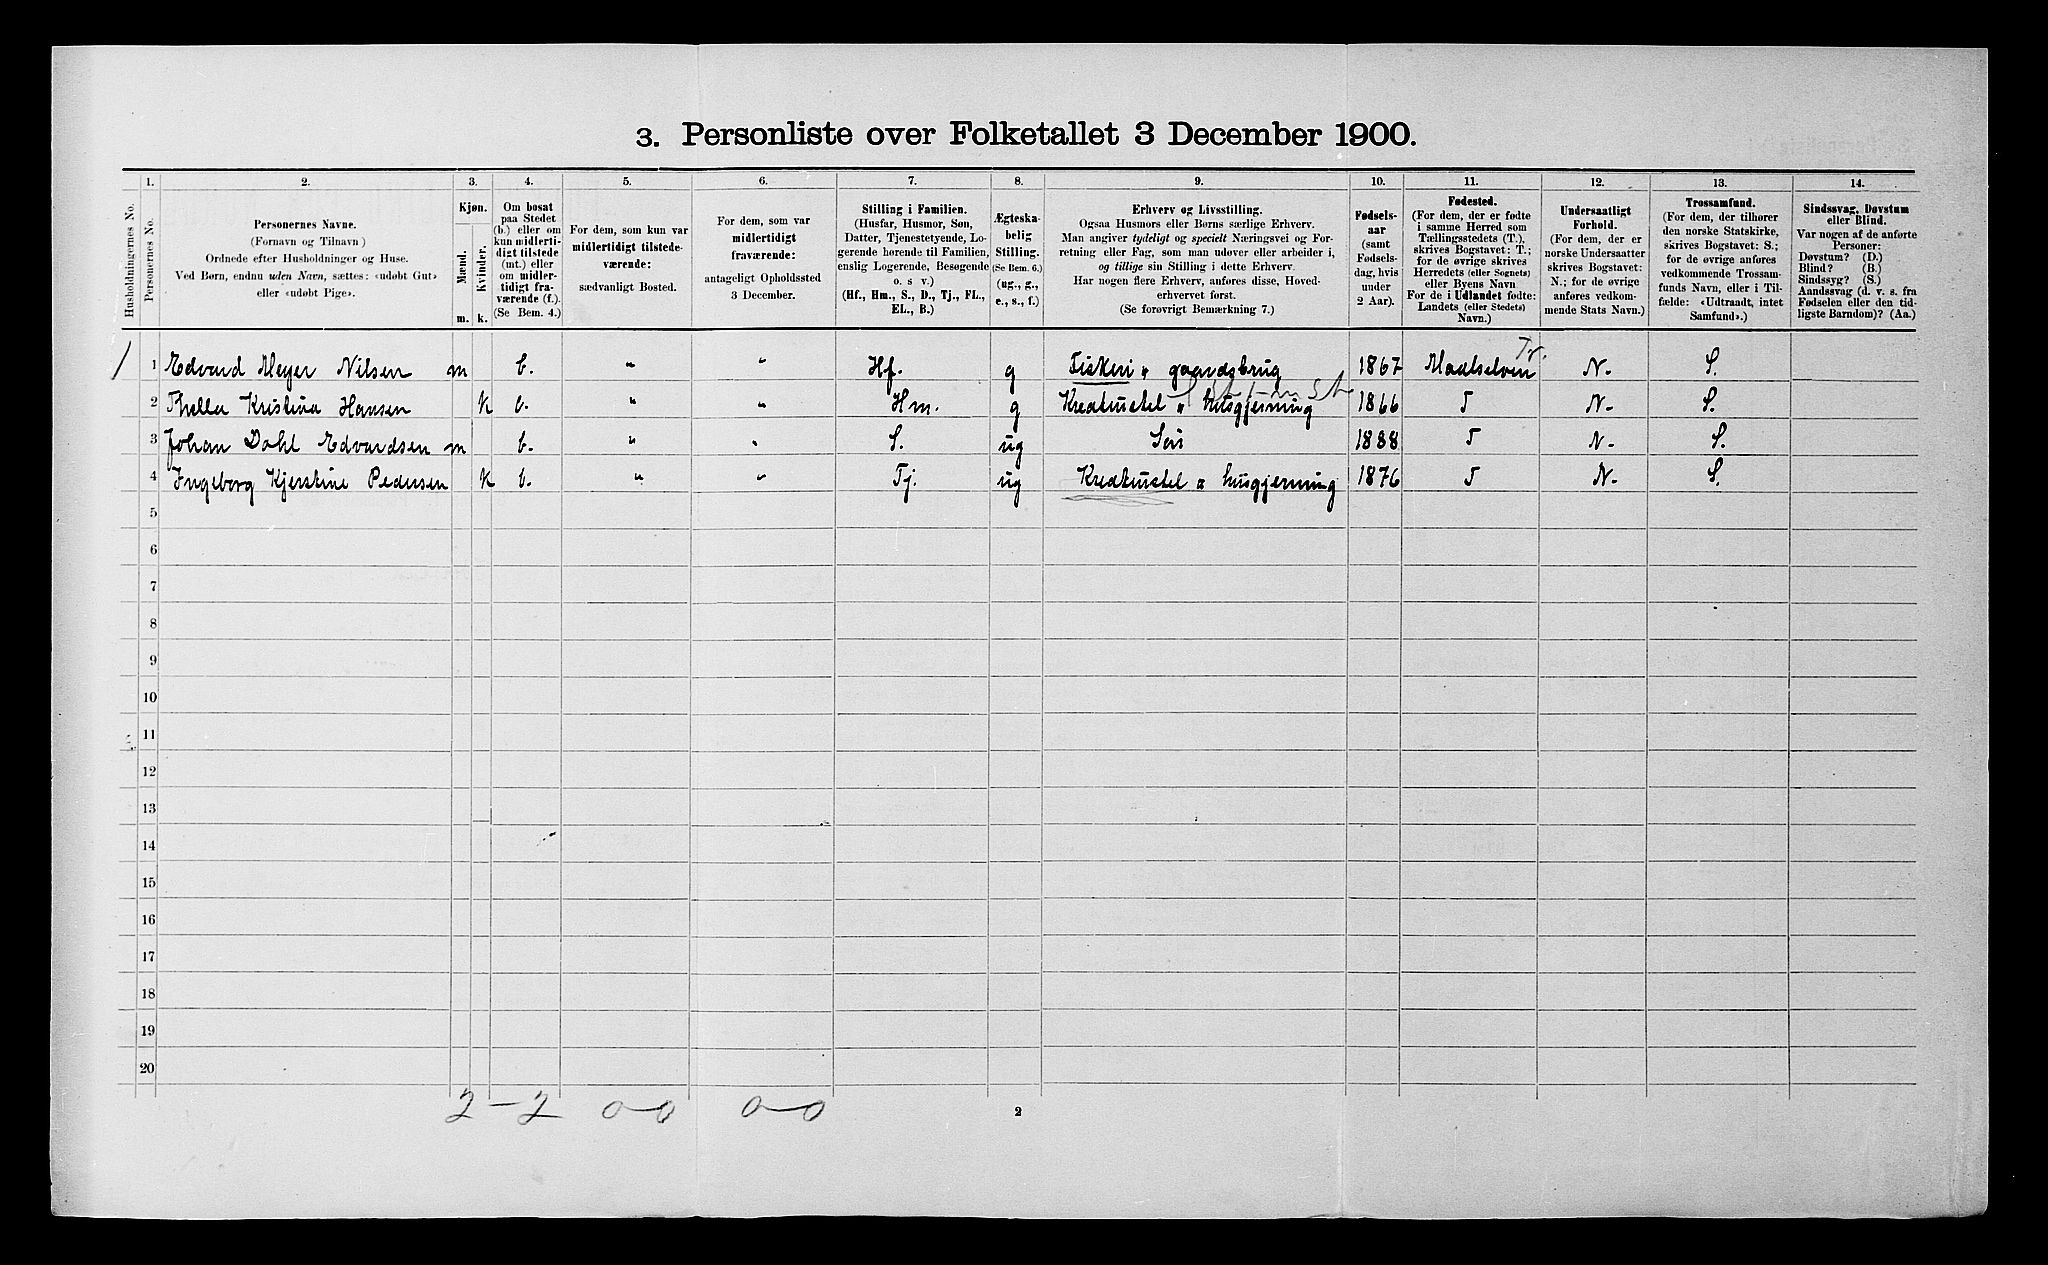 3. Personliste over Folketallet 3 December 1900.
Husholdningernes No.
1.
Personernes No.
2.
Personernes Navne.
(Fornavn og Tilnavn)
Ordnede efter Husholdninger og Huse.
Ved Børn, endnu uden Navn, sættes: «udøbt Gut»
eller «udøbt Pige».
3.
Kjøn.
Mænd.
Kvinder.
m. k.
4.
Om bosat
paa Stedet
(b.) eller om
kun midlerti-
digt tilstede
(mt.) eller
om midler-
tidigt fra-
værende (f.).
(Se Bem. 4.)
5.
For dem, som kun var
midlertidigt tilstede-
værende:
sædvanligt Bosted.
6.
For dem, som var
midlertidigt
fraværende:
antageligt Opholdssted
3 December.
7.
Stilling i Familien.
(Husfar, Husmor, Søn,
Datter, Tjenestetyende, Lo-
gerende hørende til Familien,
enslig Logerende, Besøgende
o. s. v.)
(Hf., Hm., S., D., Tj., FL.,
EL., B.)
8.
Ægteska-
belig
Stilling.
(Se Bem. 6.)
(ug., g.,
e., s., f.)
9.
Erhverv og Livsstilling.
Ogsaa Husmors eller Børns særlige Erhverv.
Man angiver tydeligt og specielt Næringsvei og For-
retning eller Fag, som man udøver eller arbeider i,
og tillige sin Stilling i dette Erhverv.
Har nogen flere Erhverv, anføres disse, Hoved-
erhvervet først.
(Se forøvrigt Bemærkning 7.)
10.
Fødsels-
aar
(samt
Fødsels-
dag, hvis
under
2 Aar).
11.
Fødested.
(For dem, der er fødte
i samme Herred som
Tællingsstedets (T.),
skrives Bogstavet: T.;
for de øvrige skrives
Herredets (eller Sognets)
eller Byens Navn
For de i Udlandet fødte:
Landets (eller Stedets)
Navn.)
12.
Undersaatligt
Forhold.
(For dem, der er
norske Undersaatter
skrives Bogstavet:
N.; for de øvrige
anføres vedkom-
mende Stats Navn.)
13.
Trossamfund.
(For dem, der tilhører
den norske Statskirke,
skrives Bogstavet: S.;
for de øvrige anføres
vedkommende Trossam-
funds Navn, eller i Til-
fælde: «Udtraadt, intet
Samfund».)
14.
Sindssvag, Døvstum
eller Blind.
Var nogen af de anførte
Personer:
Døvstum? (D.)
Blind? (B.)
Sindssyg? (S.)
Aandssvag (d. v. s. fra
Fødselen eller den tid-
ligste Barndom)? (Aa.)
Tr.
1 1 Edvard Meyer Nilsen m b. " " Hf. g Fiskeri & gaardsbrug 1867 Maalselven N. S.
2 Thella Kristina Hansen k b. " " Hm. g Kreaturstel & husgjerning 1866 T N. S.
3 Johan Dahl Edvardsen m b. " " S. ug Søn 1888 T N. S.
4 Ingeborg Kjerstine Pedersen k b. " " Tj. ug Kreaturstel & husgjerning 1876 T N. S.
5
6
7
8
9
10
11
12
13
14
15
16
17
18
19
20
2-2 0-0 0-0
2